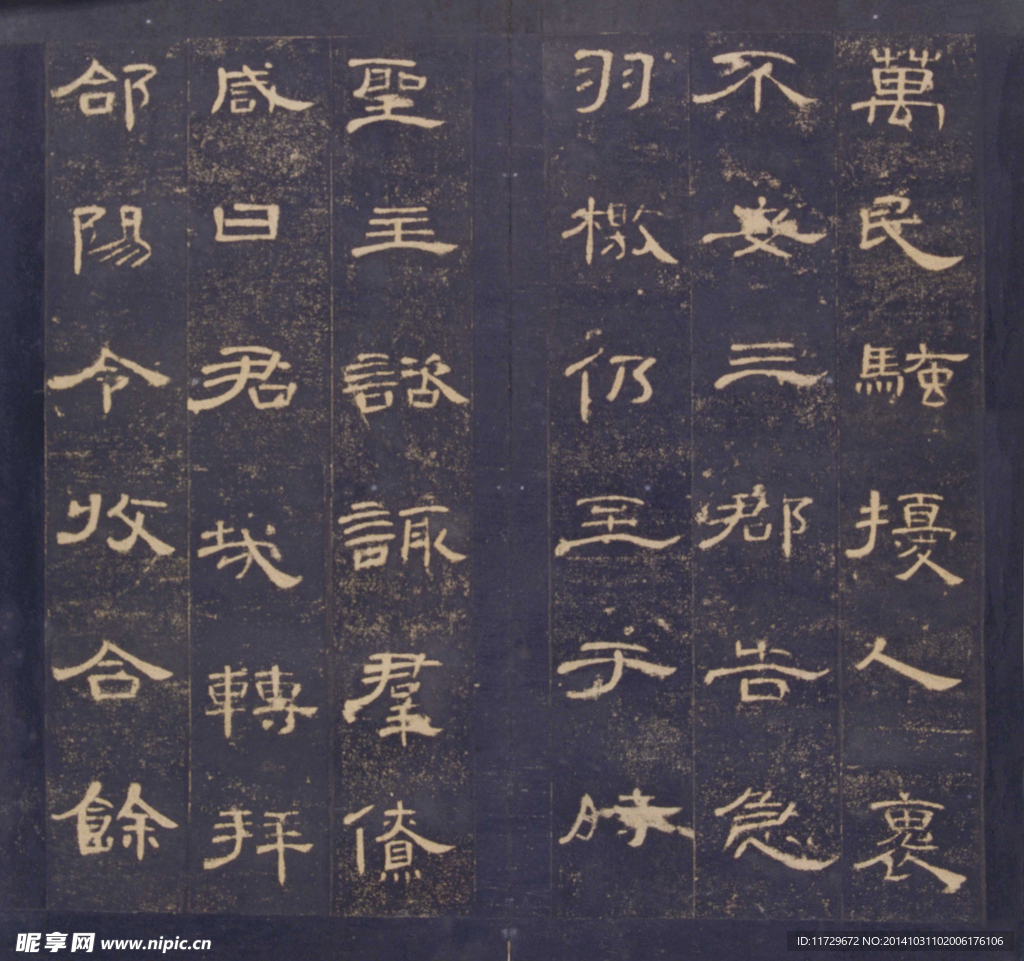 萬民騷擾人褱
不安三郡告急
羽檄仍至于時
聖主諮諏羣僚
咸曰君哉轉拜
郃陽令收合餘
昵享网 www.nipic.cn
ID:11729672 NO:20141031102006176106